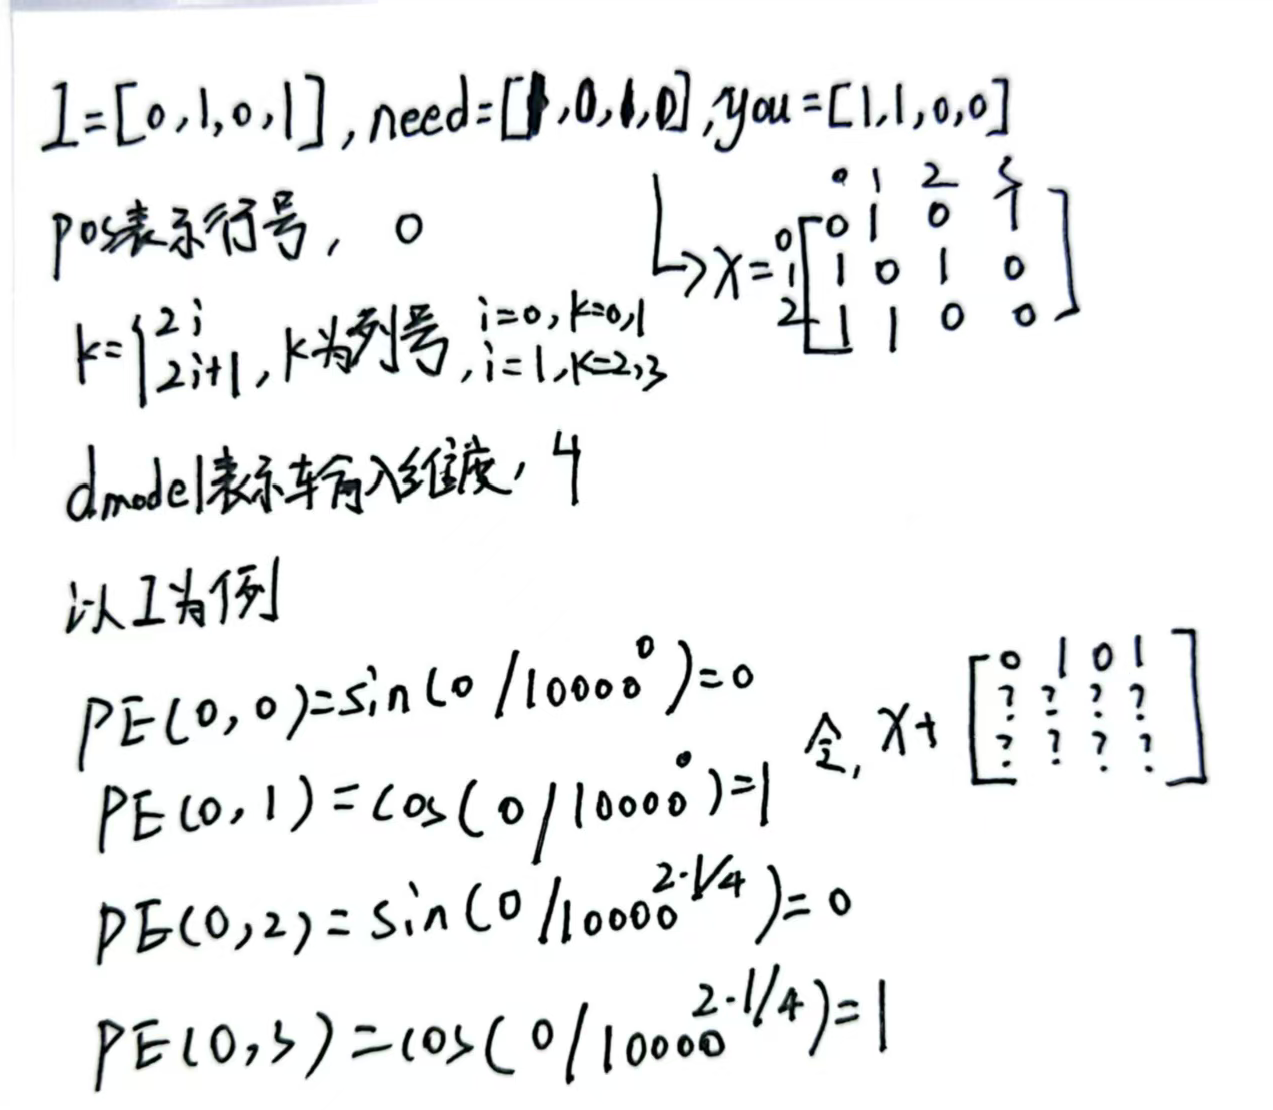 I=[0,1,0,1],need=[1,0,1,0],you=[1,1,0,0]
pos表示行号, 0
→X=
0 1 2 3
0 [0 1 0 1]
1 [1 0 1 0]
2 [1 1 0 0]
k={2i
2i+1,k为列号,i=0,k=0,1
i=1,k=2,3
dmodel表示输入维度,4
以I为例
PE(0,0)=sin(0/10000^0)=0
PE(0,1)=cos(0/10000^0)=1
令,X+
[0 1 0 1
? ? ? ?
? ? ? ?]
PE(0,2)=sin(0/10000^2·1/4)=0
PE(0,3)=cos(0/10000^2·1/4)=1